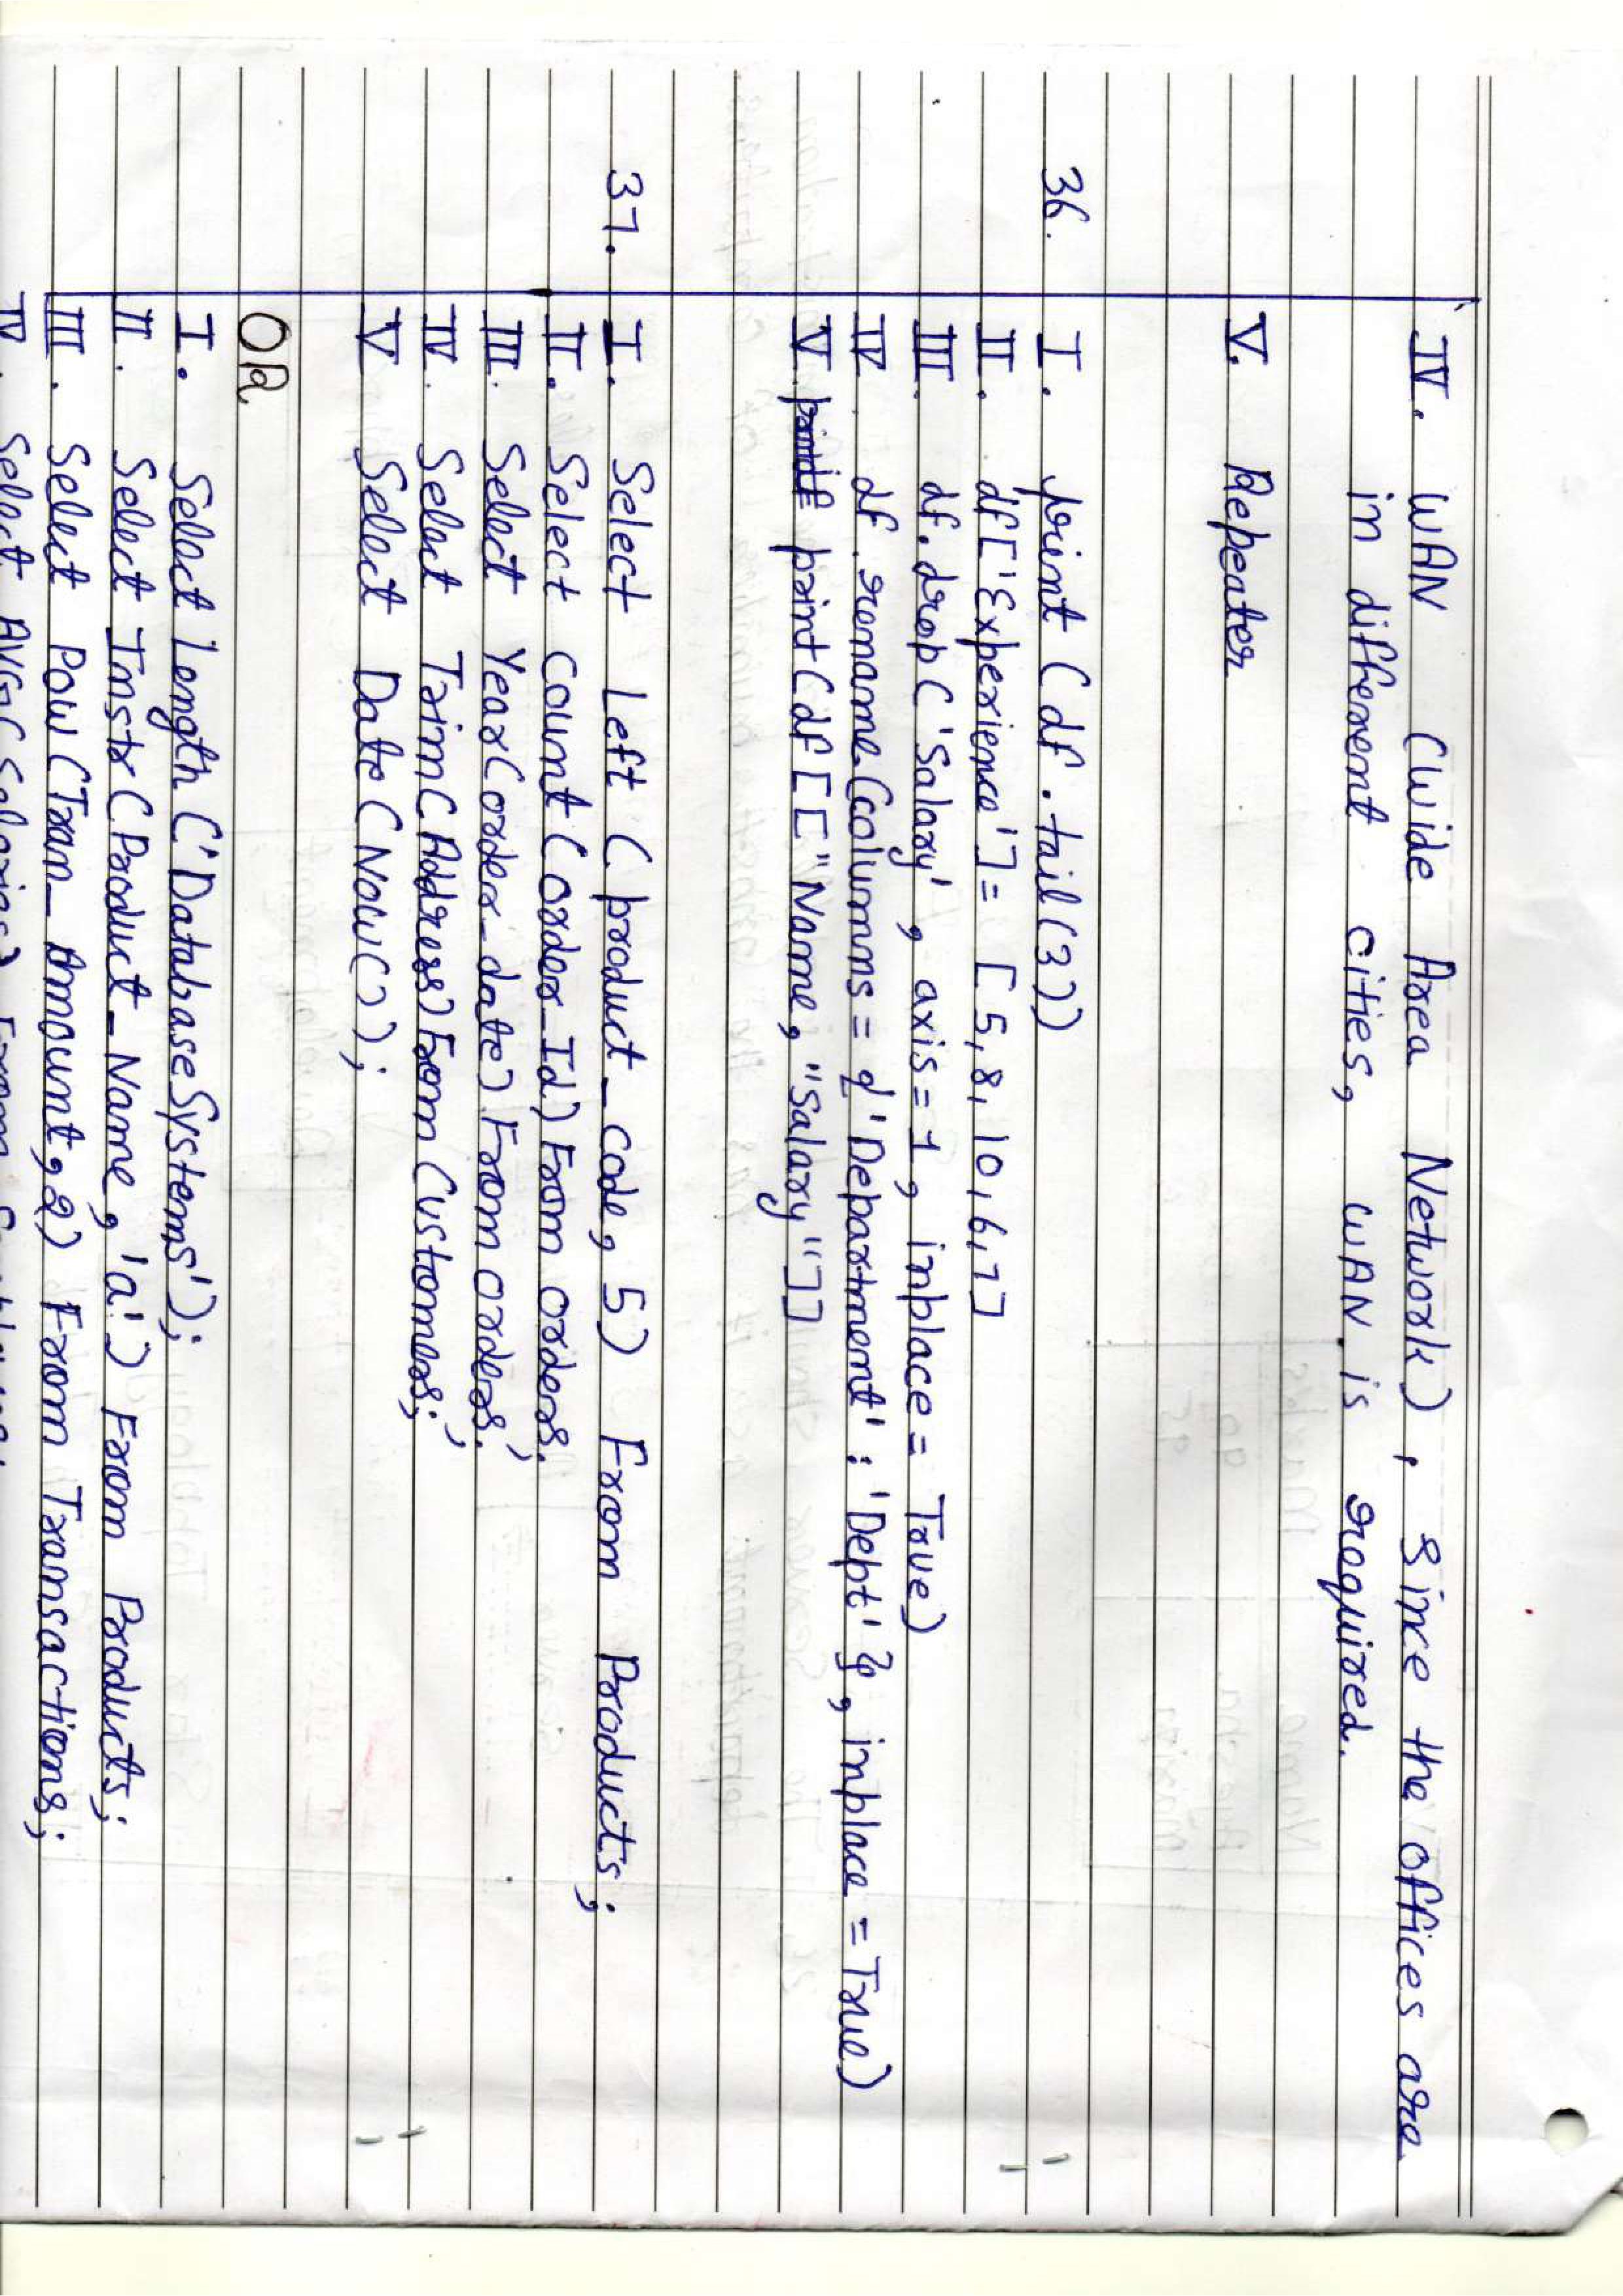 IV. WAN (Wide Area Network), Since the offices are
in different cities, WAN is required.
V. Repeater
36. I. print (df.tail(3))
II. df['Experience'] = [5, 8, 10, 6, 7]
III. df.drop('Salary', axis=1, inplace = True)
IV df.rename(columns = {'Department' : 'Dept'}, inplace = True)
V. print(df[["Name, "Salary"]]
37. I. Select Left (product_code, 5) From Products;
II. Select count(order_Id) From orders;
III. Select Year(order_date) From orders;
IV. Select Trim(Address) From Customers;
V Select Date(Now());
OR
I. Select Length ('DatabaseSystems');
II. Select Instr (Product_Name, 'a') From Products;
III. Select Pow (Tran_Amount, 2) From Transactions;
IV. Select AVG(Salaries) From